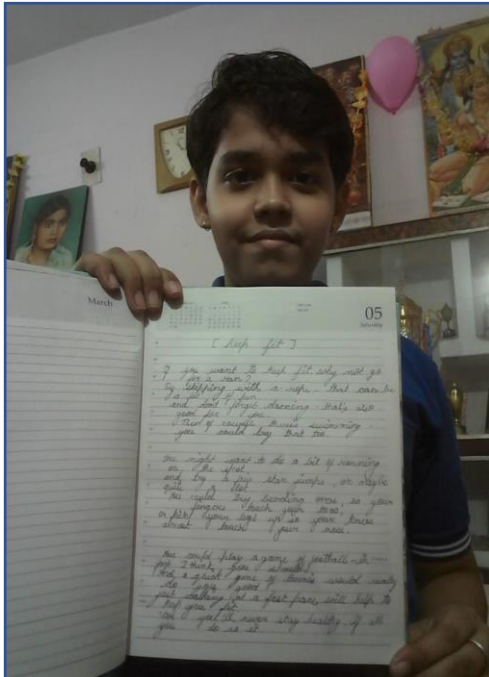 March
05
Saturday
[ Keep fit ]
If you want to keep fit, why not go
for a swim?
Try skipping with a rope - that can be
a lot of fun
and don't forget dancing - that's also
good for you.
Then of course, there's swimming -
you could try that too.
You might want to do a bit of running
on the spot,
and try a few star jumps, or maybe
quite a lot
You could try bending over, so your
fingers touch your toes,
or lift your legs up so your knees
almost touch your nose.
You could play a game of football - in
fact I think you should,
And a quick game of tennis would really
do you good
just walking at a fast pace will help to
keep you fit
you'll never stay healthy if all
you do is sit